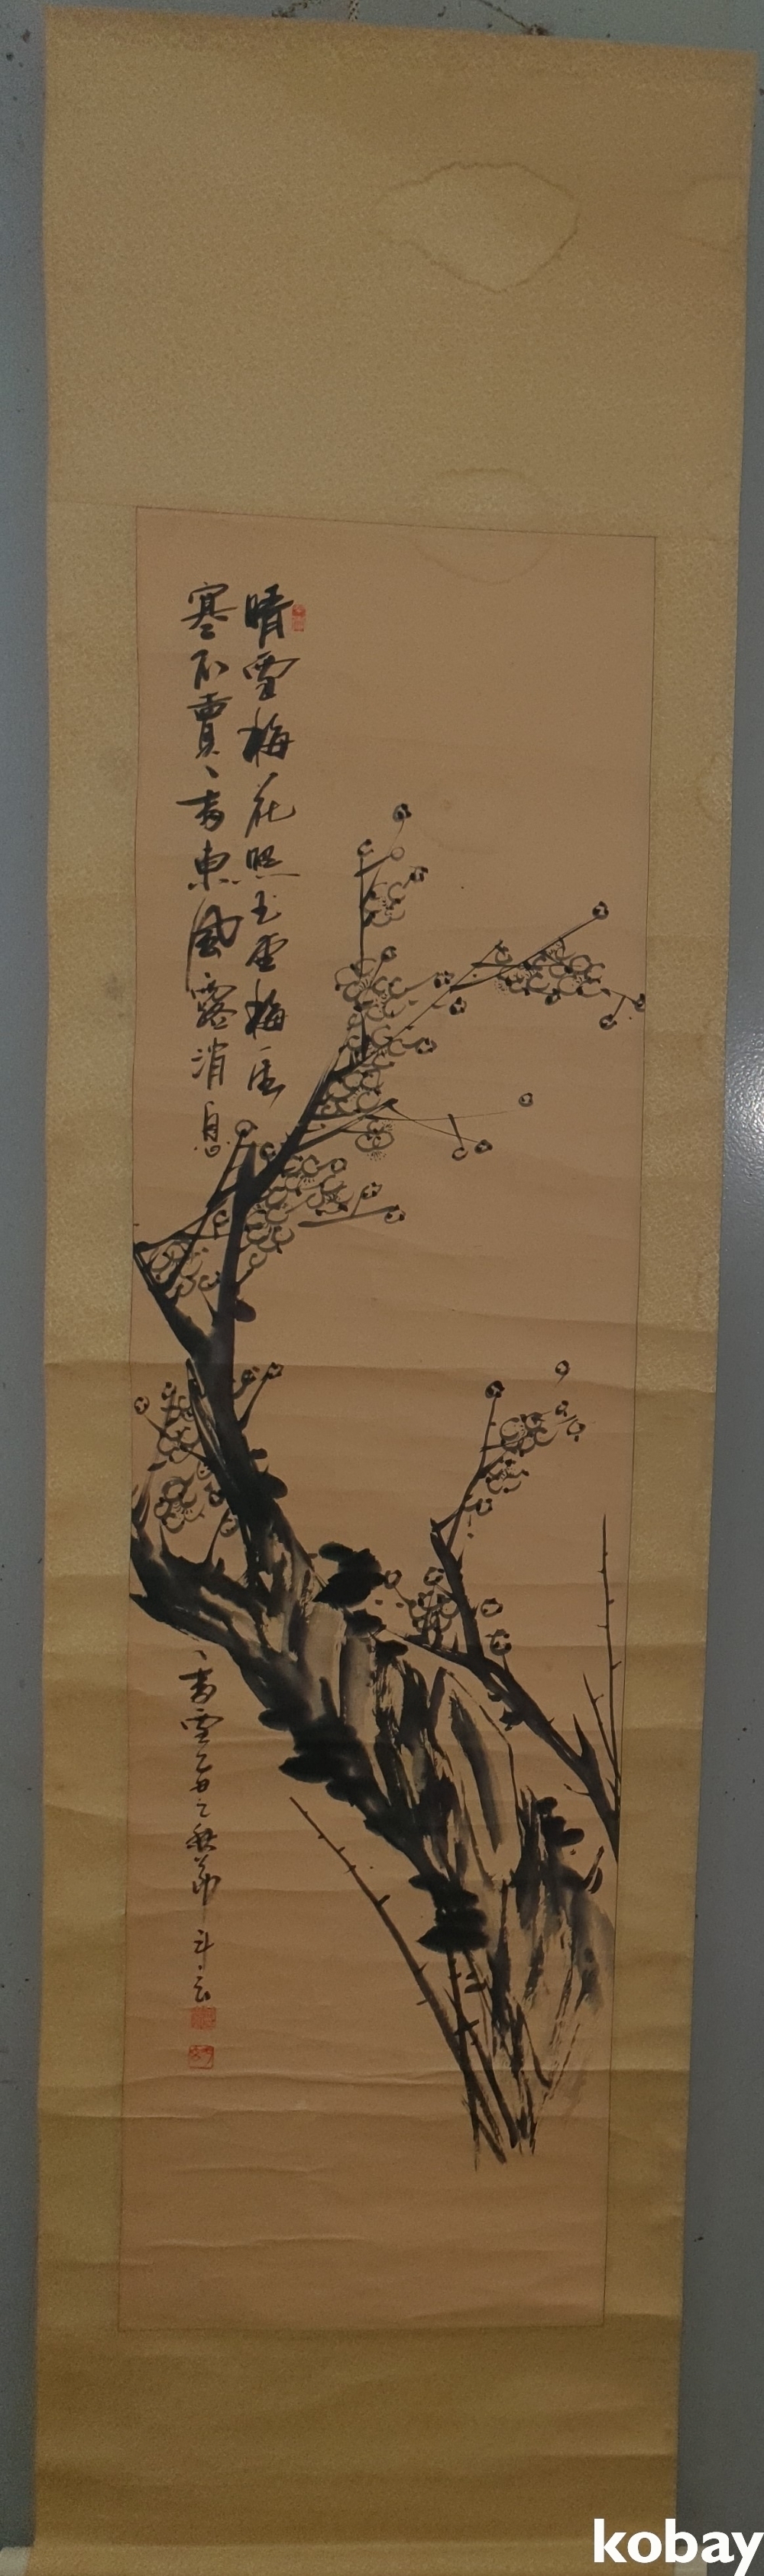 晴雪梅花照玉堂梅
寒不賣香東風露消息
香雪乙丑之秋節 斗云
kobay